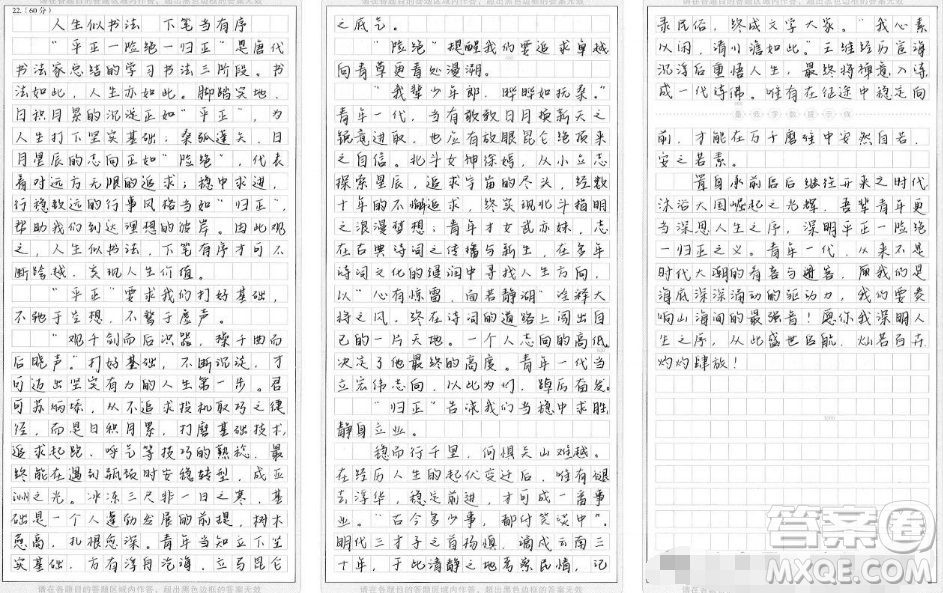 请在各题目的答题区域内作答，超出黑色边框的答案无效
22.（60分）
人生似书法 下笔当有序
“平正一险绝一归正”是唐代
书法家总结的学习书法三阶段。书
法如此，人生亦如此。脚踏实地、
日积月累的沉淀正如“平正”，为
人生打下坚实基础；桑弧蓬矢、日
月星辰的志向正如“险绝”，代表
着对远方无限的追求；稳中求进，
行稳致远的行事风格当如“归正”，
帮助我们到达理想的彼岸。因此观
之，人生似书法，下笔有序才可不
断跨越，实现人生价值。
“平正”要求我们打好基础，
不驰于空想，不骛于虚声。
“观千剑而后识器，操千曲而
后晓声”打好基础，不断沉淀，才
可迈出坚实有力的人生第一步。君
可苏炳添，从不追求投机取巧之捷
径，而是日积月累，打磨基础技术，
追求起跑、呼气等技巧的熟稔，最
终能在遇到瓶颈时安稳转型，成亚
洲之光。冰冻三尺非一日之寒，基
础是一个人蓬勃发展的前提，树木
愈高，扎根愈深。青年当知立下坚
实基础，方有浮舟沧海，立马昆仑
请在各题目的答题区域内作答，超出黑色边框的答案无效
之底气。
“险绝”提醒我们要追求卓越
向青草更青处漫溯。
“我辈少年郎，晔晔如扶桑。”
青年一代，当有敢教日月换新天之
锐意进取，也应有放眼昆仑绝顶来
之自信。北斗女神徐颖，从小立志
探索星辰，追求宇宙的尽头，经数
十年的不懈追求，终实现北斗指明
之浪漫梦想；青年才女武亦姝，志
在古典诗词之传播与新生，在多年
诗词文化的浸润中寻找人生方向，
以“心有惊雷，向若静湖”诠释大
将之风，终在诗词的道路上闯出自
己的一片天地。一个人志向的高低，
决定了他最终的高度。青年一代当
立宏伟志向，以此为们，踔厉奋发。
“归正”告诫我们当稳中求胜，
静身立业。
稳而行千里，何惧关山难越。
在经历人生的起伏变迁后，唯有褪
去浮华，稳定前进，才可成一番事
业。“古今多少事，都付笑谈中”，
明代三才子之首杨慎，谪戍云南三
十年，于此清静之地考察民情，记
请在各题目的答题区域内作答，超出黑色边框的答案无效
录民俗，终成文学大家。“我心素
以闲，清川澹如此。”王维经历宦海
沉浮后重悟人生，最终将禅意入诗，
成一代诗佛。唯有在征途中稳定向
前，才能在万千磨难中安然自若，
安之若素。
置身承前启后继往开来之时代
沐浴大国崛起之光辉，吾辈青年更
当深思人生之序，深明平正一险绝
一归正之义。青年一代，从来不是
时代大潮的看客与避客，
海底深深涌动的驱动力，我们要奏
响山海间的最强音！愿你我深明人
生之序，从此盛世启航，灿若百卉
灼灼肆放！
答案圈
MXQE.COM